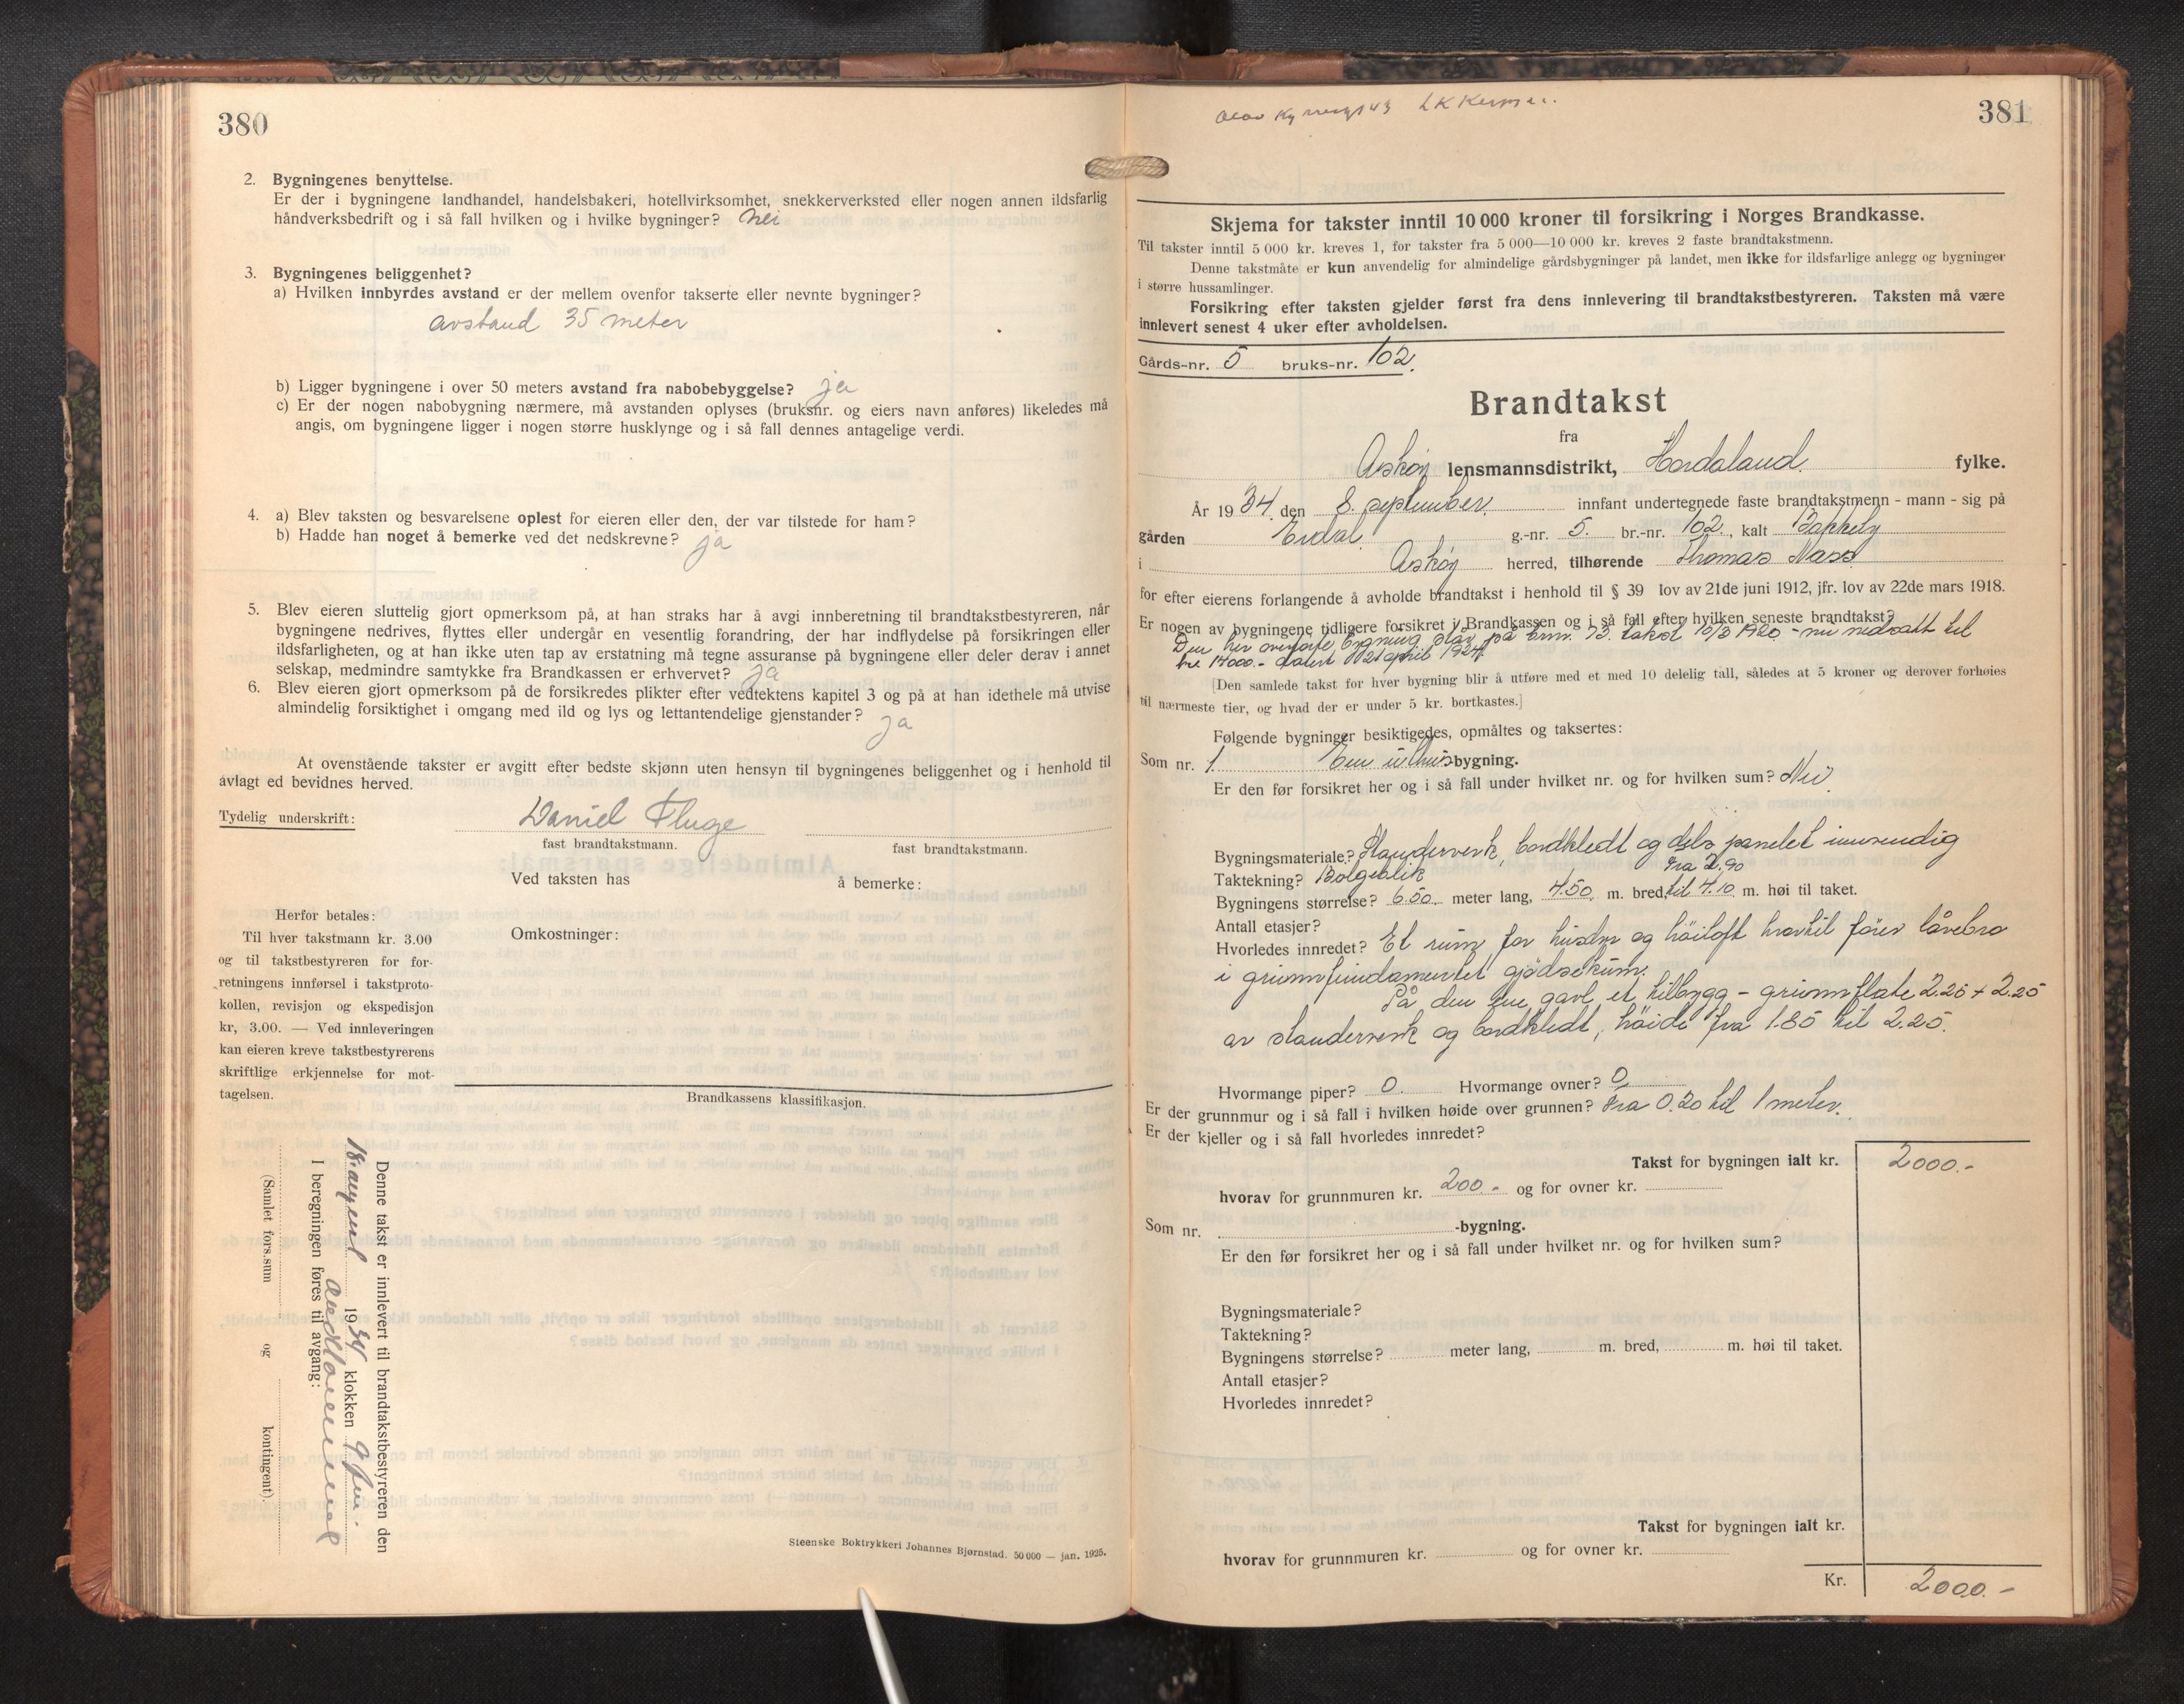 380
2. Bygningenes benyttelse.
Er der i bygningene landhandel, handelsbakeri, hotellvirksomhet, snekkerverksted eller nogen annen ildsfarlig
håndverksbedrift og i så fall hvilken og i hvilke bygninger? Nei
3. Bygningenes beliggenhet?
a) Hvilken innbyrdes avstand er der mellem ovenfor takserte eller nevnte bygninger?
avstand 35 meter
b) Ligger bygningene i over 50 meters avstand fra nabobebyggelse? ja
c) Er der nogen nabobygning nærmere, må avstanden oplyses (bruksnr. og eiers navn anføres) likeledes må
angis, om bygningene ligger i nogen større husklynge og i så fall dennes antagelige verdi.
4. a) Blev taksten og besvarelsene oplest for eieren eller den, der var tilstede for ham?
b) Hadde han noget å bemerke ved det nedskrevne? ja
5. Blev eieren sluttelig gjort opmerksom på, at han straks har å avgi innberetning til brandtakstbestyreren, når
bygningene nedrives, flyttes eller undergår en vesentlig forandring, der har indflydelse på forsikringen eller
ildsfarligheten, og at han ikke uten tap av erstatning må tegne assuranse på bygningene eller deler derav i annet
selskap, medmindre samtykke fra Brandkassen er erhvervet? ja
6. Blev eieren gjort opmerksom på de forsikredes plikter efter vedtektens kapitel 3 og på at han idethele må utvise
almindelig forsiktighet i omgang med ild og lys og lettantendelige gjenstander? ja
At ovenstående takster er avgitt efter bedste skjønn uten hensyn til bygningenes beliggenhet og i henhold til
avlagt ed bevidnes herved.
Tydelig underskrift: Daniel Fluge
fast brandtakstmann. fast brandtakstmann.
Ved taksten has å bemerke:
Herfor betales:
Til hver takstmann kr. 3.00
og til takstbestyreren for for-
retningens innførsel i takstproto-
kollen, revisjon og ekspedisjon
kr, 3.00. — Ved innleveringen
kan eieren kreve takstbestyrerens
skriftlige erkjennelse for mot-
tagelsen.
Omkostninger:
Brandkassens klassifikasjon.
Denne takst er innlevert til brandtakstbestyreren den
18. august 1934 klokken 9
I beregningen føres til avgang:
(Samlet fors.sum og kontingent)
Steenske Boktrykkeri Johannes Bjørnstad. 50 000 — jan. 1925.
381
Skjema for takster inntil 10 000 kroner til forsikring i Norges Brandkasse.
Til takster inntil 5 000 kr. kreves 1, for takster fra 5 000—10 000 kr. kreves 2 faste brandtakstmenn.
Denne takstmåte er kun anvendelig for almindelige gårdsbygninger på landet, men ikke for ildsfarlige anlegg og bygninger
i større hussamlinger.
Forsikring efter taksten gjelder først fra dens innlevering til brandtakstbestyreren. Taksten må være
innlevert senest 4 uker efter avholdelsen.
Gårds-nr. 5 bruks-nr. 102.
Brandtakst
fra
Askøy lensmannsdistrikt, Hordaland fylke.
År 1934 den 8. september innfant undertegnede faste brandtakstmenn - mann - sig på
gården Erdal g.-nr. 5. br.-nr. 102., kalt Bakkely
i Askøy herred, tilhørende Thomas Næss
for efter eierens forlangende å avholde brandtakst i henhold til § 39 lov av 21de juni 1912, jfr. lov av 22de mars 1918.
Er nogen av bygningene tidligere forsikret i Brandkassen og i så fall efter hvilken seneste brandtakst?
Den her bygning står på brnr. 73. takst 10/3 1920 - nu nedsatt til
kr. 14000.- datert 21 april 1924
[Den samlede takst for hver bygning blir å utføre med et med 10 delelig tall, således at 5 kroner og derover forhøies
til nærmeste tier, og hvad der er under 5 kr. bortkastes.]
Følgende bygninger besiktigedes, opmåltes og taksertes:
Som nr. 1. En uthus-bygning.
Er den før forsikret her og i så fall under hvilket nr. og for hvilken sum? Nei
Bygningsmateriale? Standerverk, bordkledt og dels panelet innvendig
Taktekning? Bølgeblik
Bygningens størrelse? 6.50. meter lang, 4.50. m. bred, fra 2.90 til 4.10 m. høi til taket.
Antall etasjer?
Hvorledes innredet? Et rum for husdyr og høiloft hvortil fører låvebro
i grunnfundamentet gjødselkum.
På den ene gavl et tilbygg - grunnflate 2.25 + 2.25
av standerverk og bordkledt, høide fra 1.85 til 2.25.
Hvormange piper? 0. Hvormange ovner? 0
Er der grunnmur og i så fall i hvilken høide over grunnen? Fra 0.20 til 1 meter.
Er der kjeller og i så fall hvorledes innredet?
Takst for bygningen ialt kr. 2000.-
hvorav for grunnmuren kr. 200.- og for ovner kr.
Som nr. -bygning.
Er den før forsikret her og i så fall under hvilket nr. og for hvilken sum?
Bygningsmateriale?
Taktekning?
Bygningens størrelse? meter lang, m. bred, m. høi til taket.
Antall etasjer?
Hvorledes innredet?
Takst for bygningen ialt kr.
hvorav for grunnmuren kr. og for ovner kr.
Kr. 2000.-